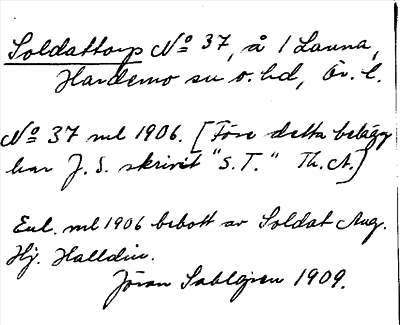 Soldattorp No 37, å 1 Launa,
Hardemo sn o. hd, Ör. l.
No 37 ml 1906. [Före detta belägg
har J. S. skrivit "S. T." Th. A.]
Enl. ml 1906 bebott av Soldat Aug.
Hj. Halldin.
Jöran Sahlgren 1909.